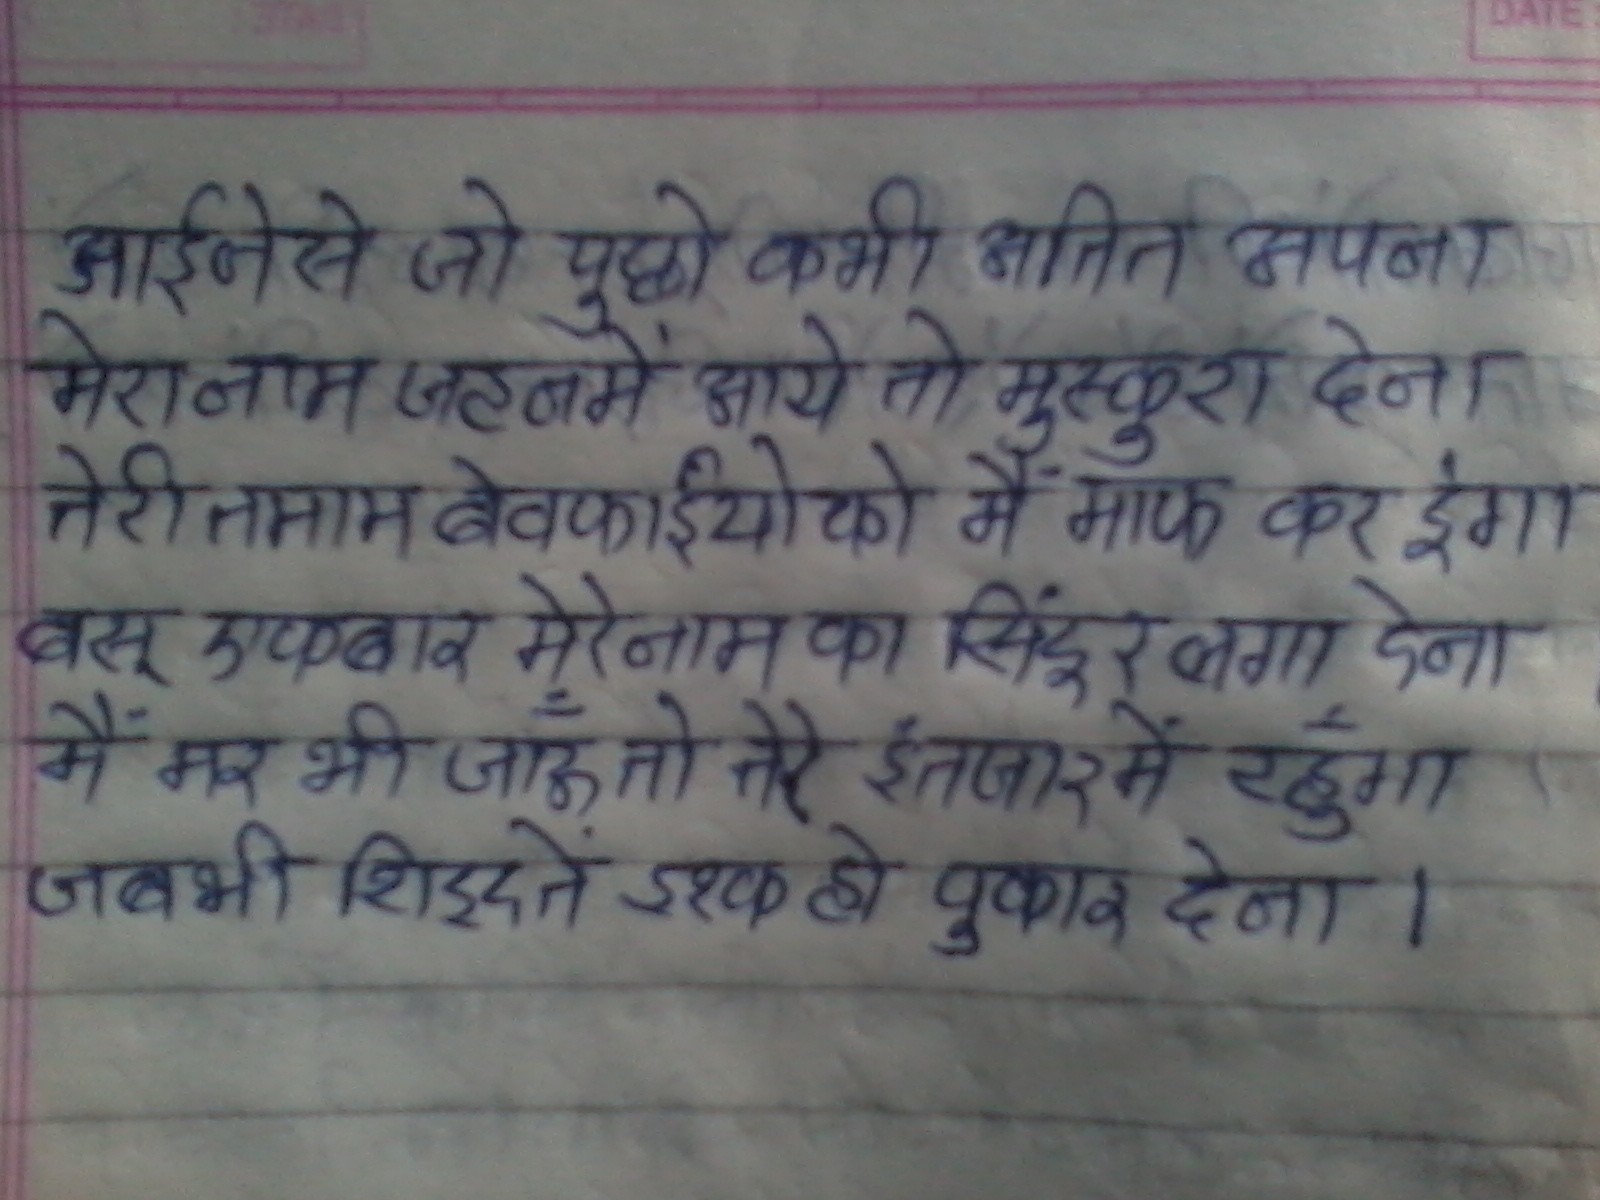 DATE:
आईनेसे जो पुछो कभी अतित अपना
मेरा नाम जहनमें आये तो मुस्कुरा देना
तेरी तमाम बेवफाईयोको मैं माफ कर दूंगा
बस् एकबार मेरे नाम का सिंदूर लगा देना
मैं मर भी जाऊँ तो तेरे इंतजारमें रहुँगा
जबभी शिद्दतें इश्क हो पुकार देना ।